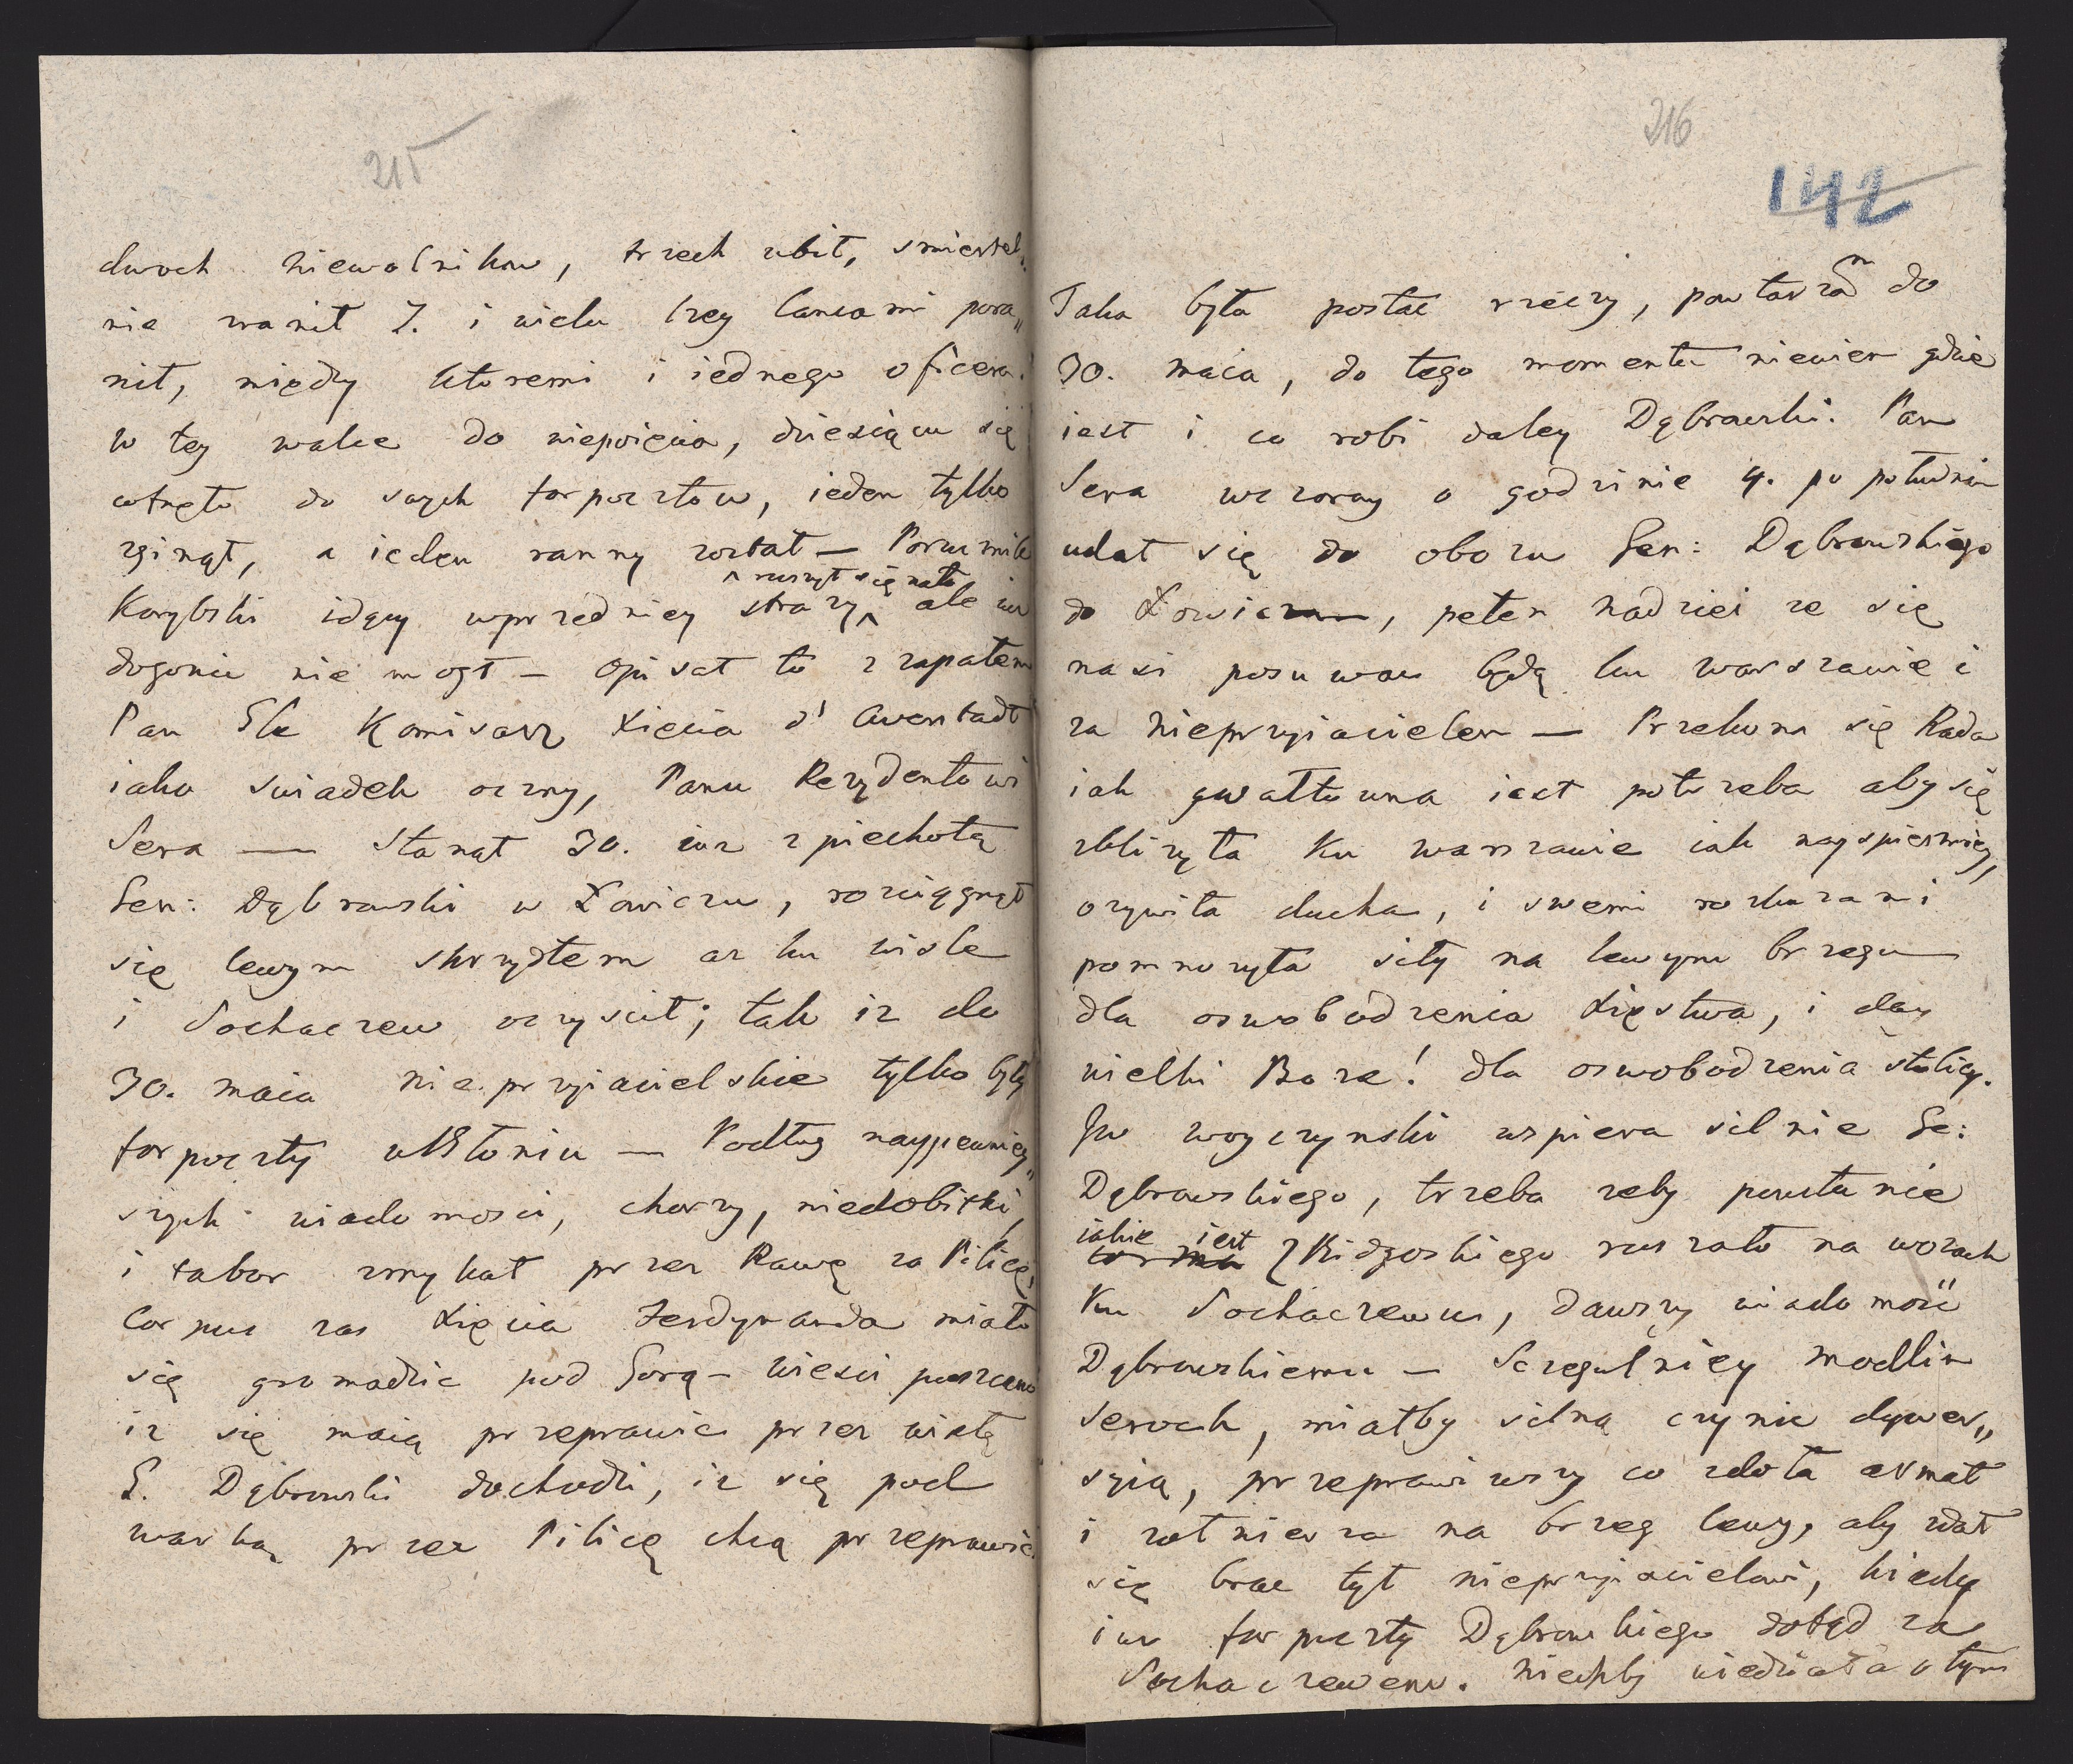 215
dwoch niewolnikow, trzech ubił, smiertel„
nie ranił 7. i wielu lzey lancami pora„
nił, między ktoremi i iednego oficera.
w tey walce do niepoięcia, dziesięciu się
cofnęło do swych forpocztow, ieden tylko
zginął, a ieden ranny został — Porucznik
ruszył się nato
Karylski idący wprzedniey strazy ale iuz
dogonic nie mogł — opisał to z zapałem
Pan Komisarz Xięcia d'Averstadt
iako swiadek oczny, Panu Rezydentowi
Sera — Stanął 30. iuz z piechotą
Gen: Dąbrowski w Łowiczu, rozciągnął
się lewym skrzydłem az ku wisle
i Sochaczew oczyscił; tak iz do
30. maia nieprzyiacielskie tylko były
forpoczty w Błoniu — Podług naypewniey„
szych wiadomosci, chorzy, niedobitki,
i tabor zmykał przez Rawę za Pilicę,
Corpus zas Xięcia Ferdynanda miało
się gromadzic pod Gorą — wiesci puszczono
iz się maią przeprawic przez wisłę
G. Dąbrowski dochodzi, iz się pod
warką przez Pilicę chcą przeprawic.
216
142
Taka była postac rzeczy, powtarzam do
30. maia, do tego momentu niewiem gdzie
iest i co robi daley Dąbrowski. Pan
Sera wczoray o godzinie 4. po południu
udał się do obozu Gen: Dąbrowskiego
do Łowicza, pełen nadziei ze się
nasi posuwac będą ku warszawie i
za nieprzyiacielem — Przekona się Rada
iak gwałtowna iest potrzeba aby się
zblizyła ku warszawie iak nayspieszniey,
ozywiła ducha, i swemi rozkazami
pomnozyła siły na lewym brzegu
dla oswobodzenia Xięstwa, i day
wielki Boze! dla oswobodzenia stolicy.
JW woyczynski wspiera silnie Ge:
Dąbrowskiego, trzeba zeby powstanie
iakie iest
z Bidgoskiego ruszało na wozach
Ku Sochaczewu, dawszy wiadomość
Dąbrowskiemu — Szegulniey modlin
Serock, miałby silną czynic dywer„
syią, przeprawiwszy co zdoła armat
i zołnierza na brzeg lewy, aby zdał
się brac tył nieprzyiacielowi, kiedy
iuz forpoczty Dąbrowskiego dotąd za
Sochaczewem. niechby wiedziała o tym